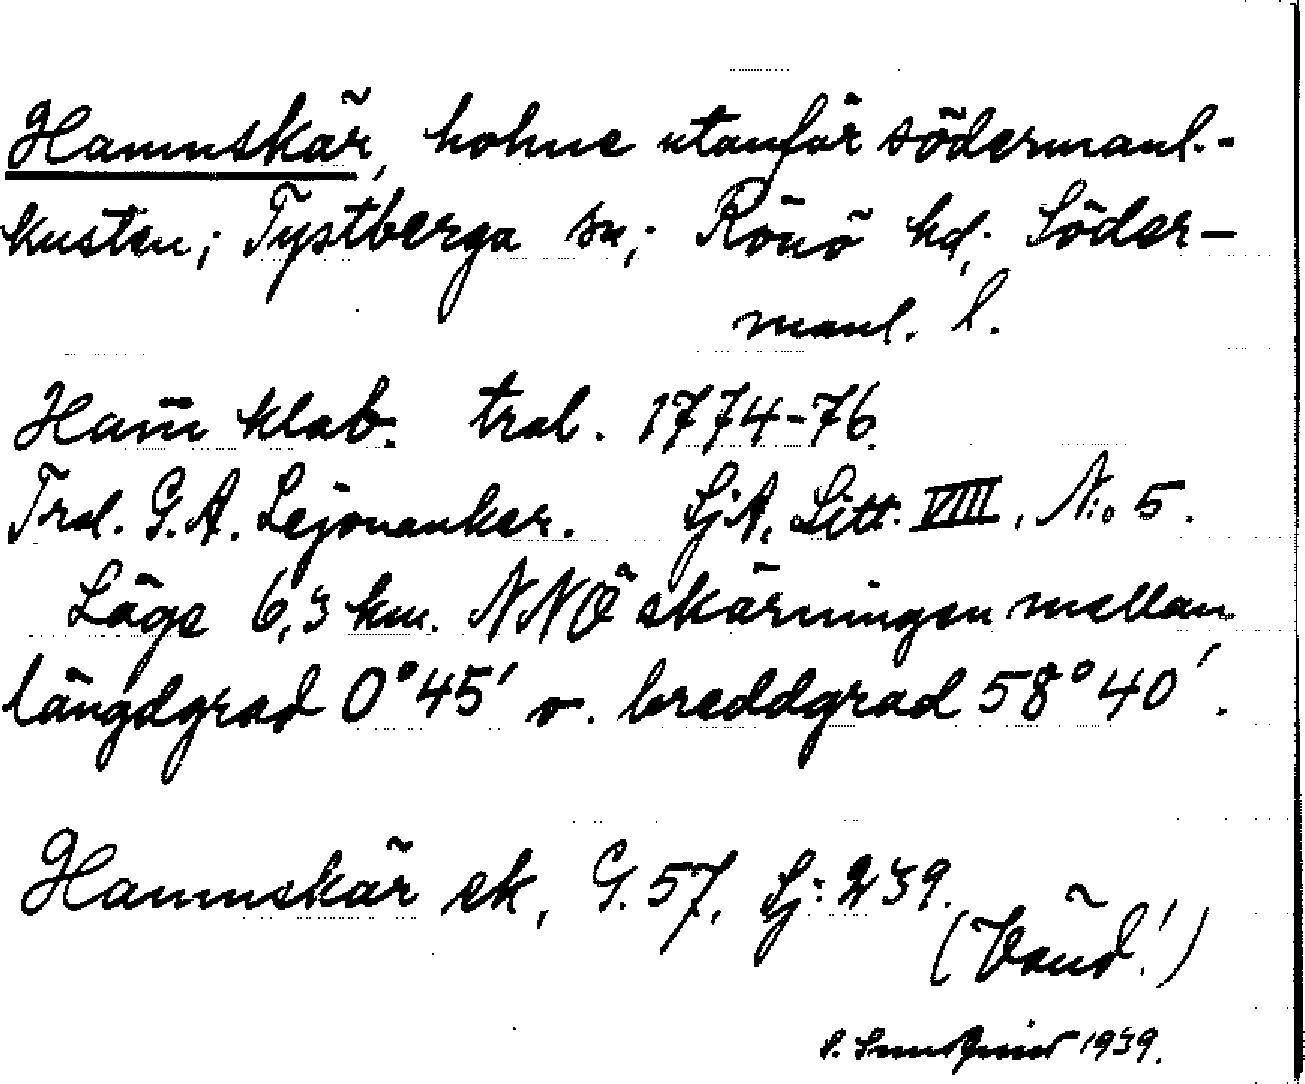 Hamnskär, holme utanför södermanl.-
kusten; Tystberga sn; Rönö hd; Söder-
manl. l.
Ham̄ klab. tral. 1774-76.
Trol. G.A. Lejonanker. SjA, Litt. VIII, N:o 5.
Läge 6,3 km. NNÖ skärningen mellan
längdgrad 0°45' o. breddgrad 58°40'.
Hamnskär ek, G. 57, Sj: 239.
(Vänd!)
1939.